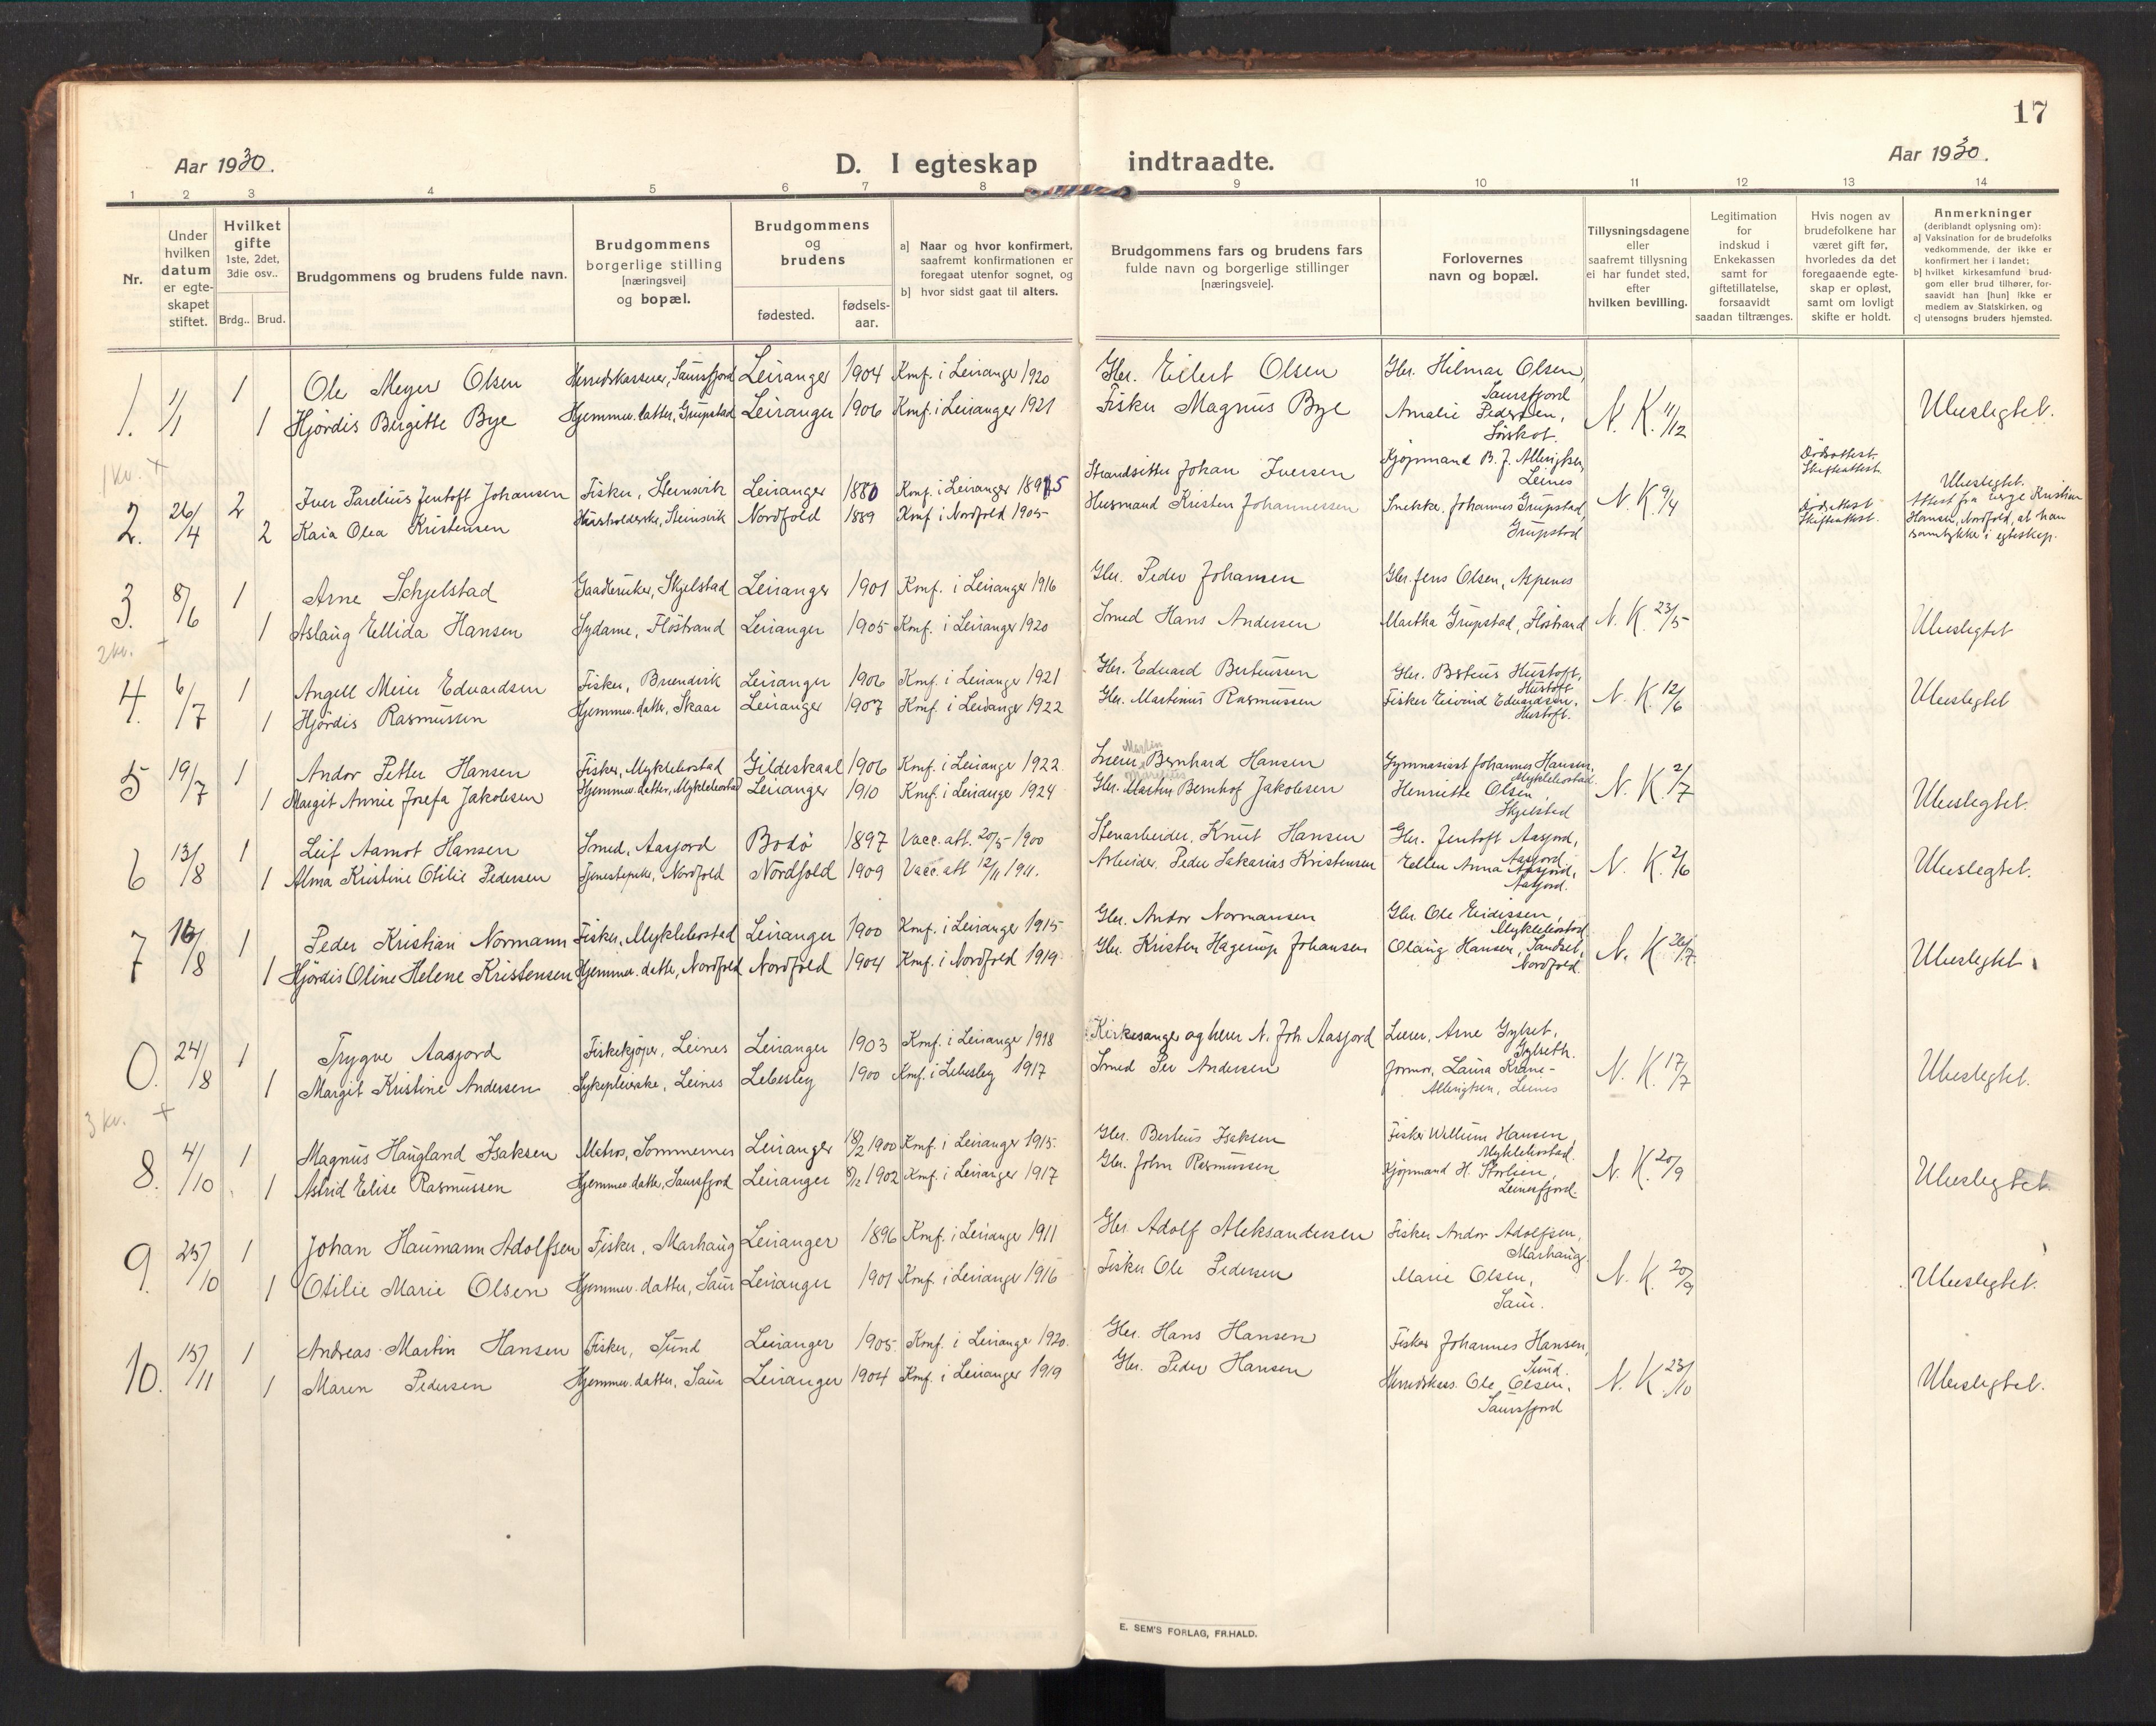 17
Aar 1930.
D. I egteskap indtraadte.
Aar 1930.
1 2 3 4 5 6 7 8 9 10 11 12 13 14
Nr.
Under hvilken datum er egte- skapet stiftet.
Hvilket gifte 1ste, 2det, 3die osv..
Brdg.. Brud.
Brudgommens og brudens fulde navn.
Brudgommens borgerlige stilling [næringsvei] og bopæl.
Brudgommens og brudens
fødested.
fødsels- aar.
a] Naar og hvor konfirmert, saafremt konfirmationen er foregaat utenfor sognet, og
b] hvor sidst gaat til alters.
Brudgommens fars og brudens fars fulde navn og borgerlige stillinger [næringsveie].
Forlovernes navn og bopæl.
Tillysningsdagene eller saafremt tillysning ei har fundet sted, efter hvilken bevilling.
Legitimation for indskud i Enkekassen samt for giftetillatelse, forsaavidt saadan tiltrænges.
Hvis nogen av brudefolkene har været gift før, hvorledes da det foregaaende egte- skap er opløst, samt om lovligt skifte er holdt.
Anmerkninger (deriblandt oplysning om):
a] Vaksination for de brudefolks vedkommende, der ikke er konfirmert her i landet;
b] hvilket kirkesamfund brud- gom eller brud tilhører, for- saavidt han [hun] ikke er medlem av Statskirken, og
c] utensogns bruders hjemsted.
1. 1/1 1 Ole Meyer Olsen Herredskasserer, Saursfjord Leiranger 1904 Konf. i Leiranger 1920 Gbr. Eilert Olsen Gbr. Hilmar Olsen, Saursfjord N. K. 11/12 Ubeslegtet.
1 Hjördis Birgitte Bye Hjemmev. datter, Grupstad Leiranger 1906 Konf. i Leiranger 1921 Fisker Magnus Bye Amalie Pedersen, Sørskot.
1 kv. +
2. 26/4 2 Iver Parelius Jentoft Johansen Fisker, Steinsvik Leiranger 1880 Konf. i Leiranger 1895 Strandsitter Johan Iversen Kjøpmand B. J. Albrigtsen, Leines N. K. 9/4 Dødsattest. Skifteattest. Ubeslegtet.
2 Kaia Olea Kristensen Husholderske, Steinsvik Nordfold 1889 Konf. i Nordfold 1905 Husmand Kristen Johannessen Snekker Johannes Grupstad, Grupstad Dødsattest Skifteattest. Attest fra verge Kristian Hansen, Nordfold, at han samtykke i egteskap.
3. 8/6 1 Arne Schjelstad Gaardbruker, Skjelstad Leiranger 1901 Konf. i Leiranger 1916 Gbr. Peder Johansen Gbr. Jens Olsen, Aspenes N. K. 23/5 Ubeslegtet
1 Aslaug Ellida Hansen Sydame, Flöstrand Leiranger 1905 Konf. i Leiranger 1920 Smed Hans Andersen Martha Grupstad, Flöstrand
2 kv. +
4. 6/7 1 Angell Meier Edvardsen Fisker, Brændvik Leiranger 1906 Konf. i Leiranger 1921 Gbr. Edvard Berteussen Gbr. Berteus Hustoft, Hustoft N. K. 12/6 Ubeslegtet
1 Hjördis Rasmussen Hjemmev. datter, Skaar Leiranger 1907 Konf. i Leiranger 1922 Gbr. Martinus Rasmussen Fisker Eivind Edvardsen, Hustoft.
5 19/7 1 Andor Petter Hansen Fisker, Myklebostad Gildeskaal 1906 Konf. i Leiranger 1922 Bernhard Hansen Gymnasiast Johannes Hansen, Myklebostad. N. K. 2/7 Ubeslegtet.
1 Margit Annie Josefa Jakobsen Hjemmev. datter, Myklebostad Leiranger 1910 Konf. i Leiranger 1924 Gbr. Martin Bernhof Jakobsen Henriette Olsen, Skjelstad
6 13/8 1 Leif Aamot Hansen Smed, Aasjord Bodö 1897 Vacc. att. 20/5 1900 Stenarbeider, Knut Hansen Gbr. Jentoft Aasjord, Aasjord. N. K. 2/6 Ubeslegtet.
1 Alma Kristine Otilie Pedersen Tjenestepike, Nordfold Nordfold 1909 Vacc. att 12/11 1911. Arbeider, Peder Sakarias Kristensen Ellen Anna Aasjord, Aasjord.
7 16/8 1 Peder Kristian Normann Fisker, Myklebostad Leiranger 1900 Konf. i Leiranger 1915 Gbr. Andor Normansen Gbr. Ole Eidissen, Myklebostad N. K. 26/7 Ubeslegtet
1 Hjördis Oline Helene Kristensen Hjemmev. datter, Nordfold Nordfold 1904 Konf. i Nordfold 1919 Gbr. Kristen Hagerup Johansen Olaug Hansen, Sandset, Nordfold.
0. 24/8 1 Trygve Aasjord Fiskekjøper, Leines Leiranger 1903 Konf. i Leiranger 1918 Kirkesanger og lærer N. Joh. Aasjord Lærer, Arne Gylset, Gylseth. N. K. 17/7 Ubeslegtet.
1 Margit Kristine Andersen Sykepleierske, Leines Lebesby 1900 Konf. i Lebesby 1917 Smed Per Andersen Jormor, Laura Krane- Albrigtsen, Leines
3 kv. +
8. 4/10 1 Magnus Haugland Isaksen Matros, Sommernes Leiranger 18/2 1900 Konf. i Leiranger 1915 Gbr. Berteus Isaksen Fisker Willum Hansen, Myklebostad. N. K. 20/9 Ubeslegtet
1 Astrid Elise Rasmussen Hjemmev. datter, Saursfjord Leiranger 1902 Konf. i Leiranger 1917 Gbr. John Rasmussen Kjøpmand H. Storlien, Leinesfjord.
9. 25/10 1 Johan Haumann Adolfsen Fisker, Marhaug Leiranger 1896 Konf. i Leiranger 1911 Gbr. Adolf Aleksandersen Fisker Andor Adolfsen, Marhaug. N. K. 20/9 Ubeslegtet.
1 Otilie Marie Olsen Hjemmev. datter, Saur Leiranger 1901 Konf. i Leiranger 1916 Fisker Ole Pedersen Marie Olsen, Saur.
10. 15/11 1 Andreas Martin Hansen Fisker, Sund Leiranger 1905 Konf. i Leiranger 1920. Gbr. Hans Hansen Fisker Johannes Hansen, Sund. N. K. 23/10 Ubeslegtet.
1 Maren Pedersen Hjemmev. datter, Saur Leiranger 1904 Konf. i Leiranger 1919 Gbr. Peder Hansen Herredskass. Ole Olsen, Saursfjord
E. SEM'S FORLAG, FR.HALD.